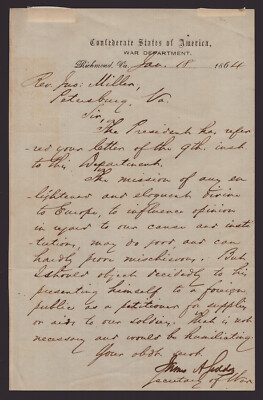 Confederate States of America,
WAR DEPARTMENT,
Richmond, Va. Jan. 18 1864
Rev. Jno: Miller,
Petersburg, Va.
Sir,
The President has refer
-red your letter of the 9th inst
to this Department.
The mission of any en
-lightened and eloquent divine
to Europe, to influence opinion
in regard to our cause and insti
-tutions, may do good, and can
hardly prove mischievous. But
I should object decidedly to his
presenting himself to a foreign
public as a petitioner for supplies
or aids to our soldiers. That is not
necessary and would be humiliating
Your obdt svt
James A Seddon
Secretary of War